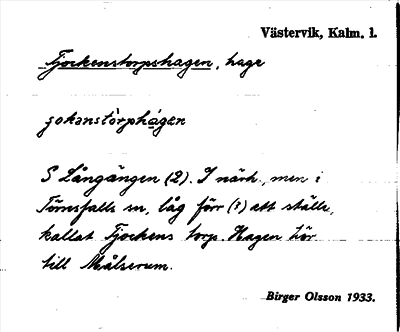 Västervik, Kalm. l.
Tjockenstorpshagen, hage
jokanstòrphágen
S Långängen (2). I närh., men i
Törnsfalls sn, låg förr (?) ett ställe,
kallat Tjockens torp. Hagen hör
till Målserum.
Birger Olsson 1933.